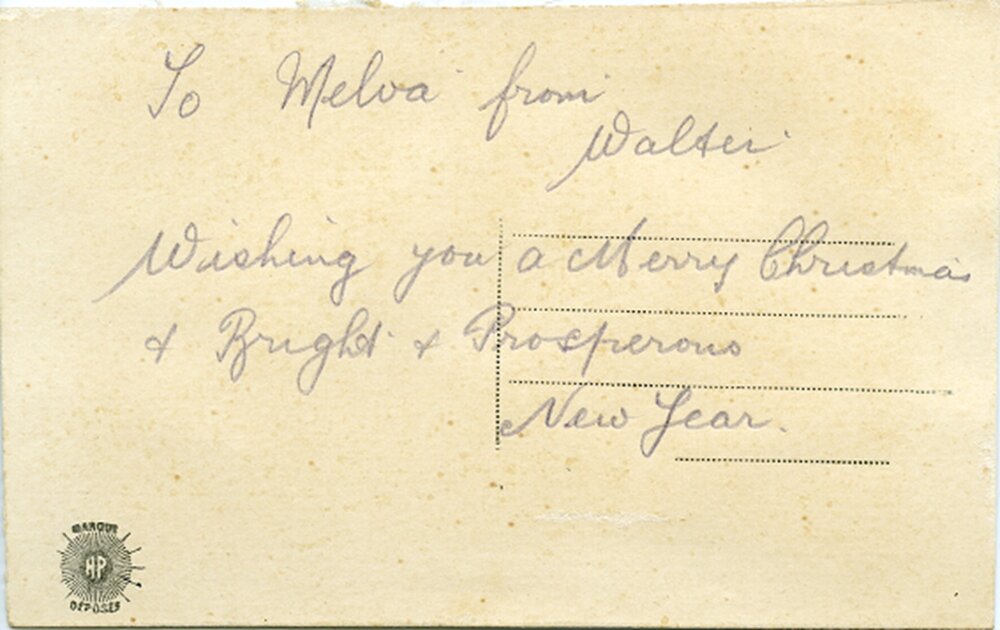 To Melva from
Walter
Wishing you a Merry Christmas
& Bright & Prosperous
New Year.
MARQUE
AP
DEPOSEE